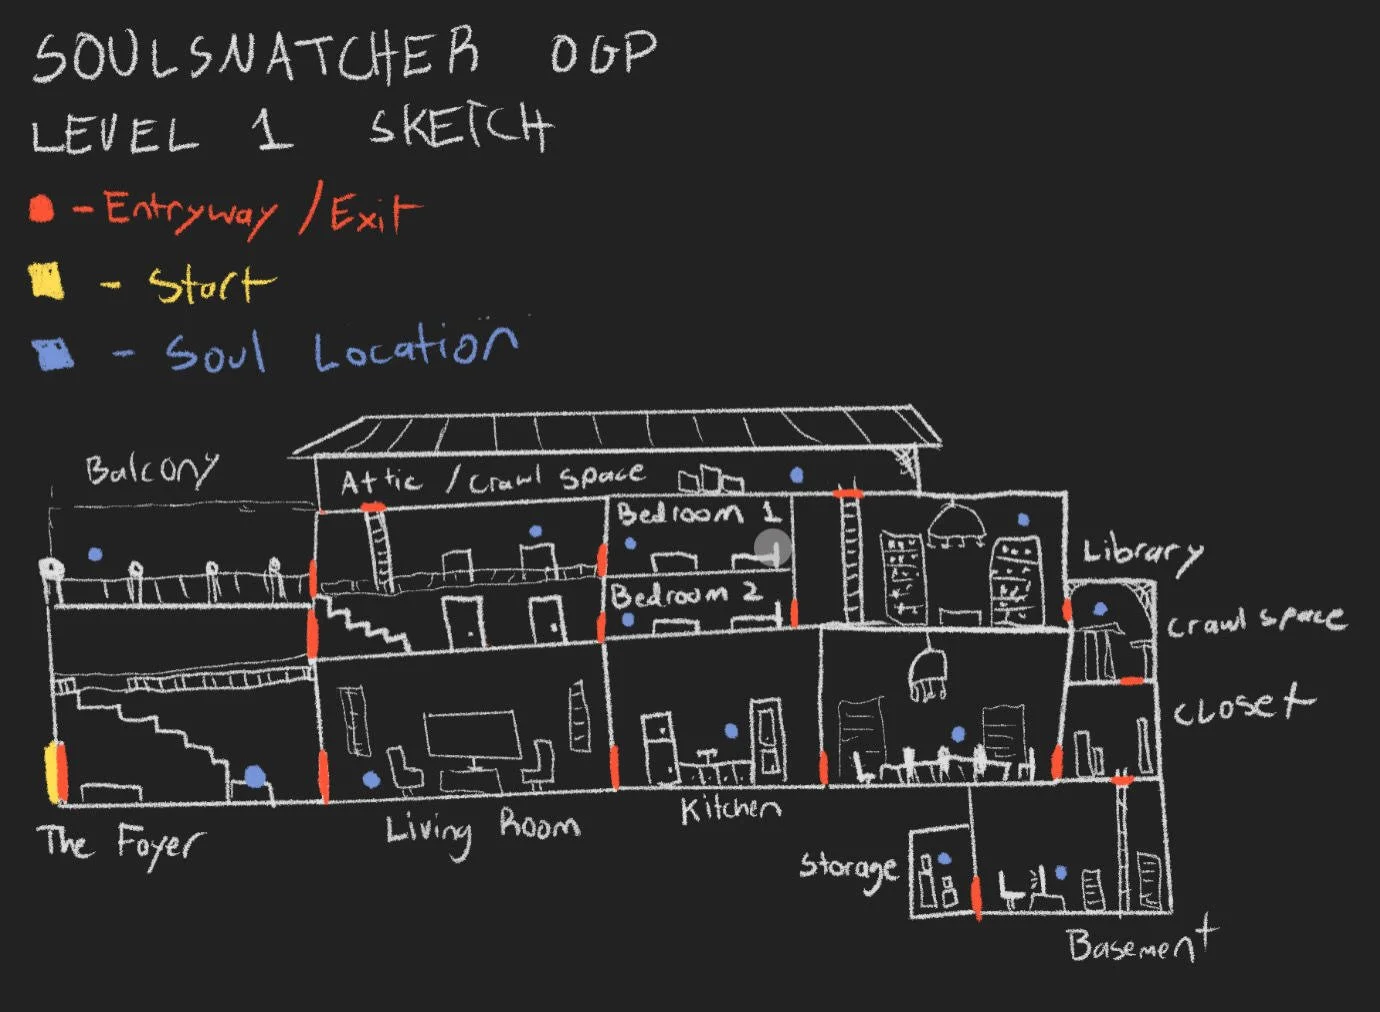 SOULSNATCHER OGP
LEVEL 1 SKETCH
- Entryway / Exit
- Start
- Soul Location
Balcony
Attic / Crawl space
Bedroom 1
Bedroom 2
Library
Crawl space
Closet
The Foyer
Living Room
Kitchen
Storage
Basement